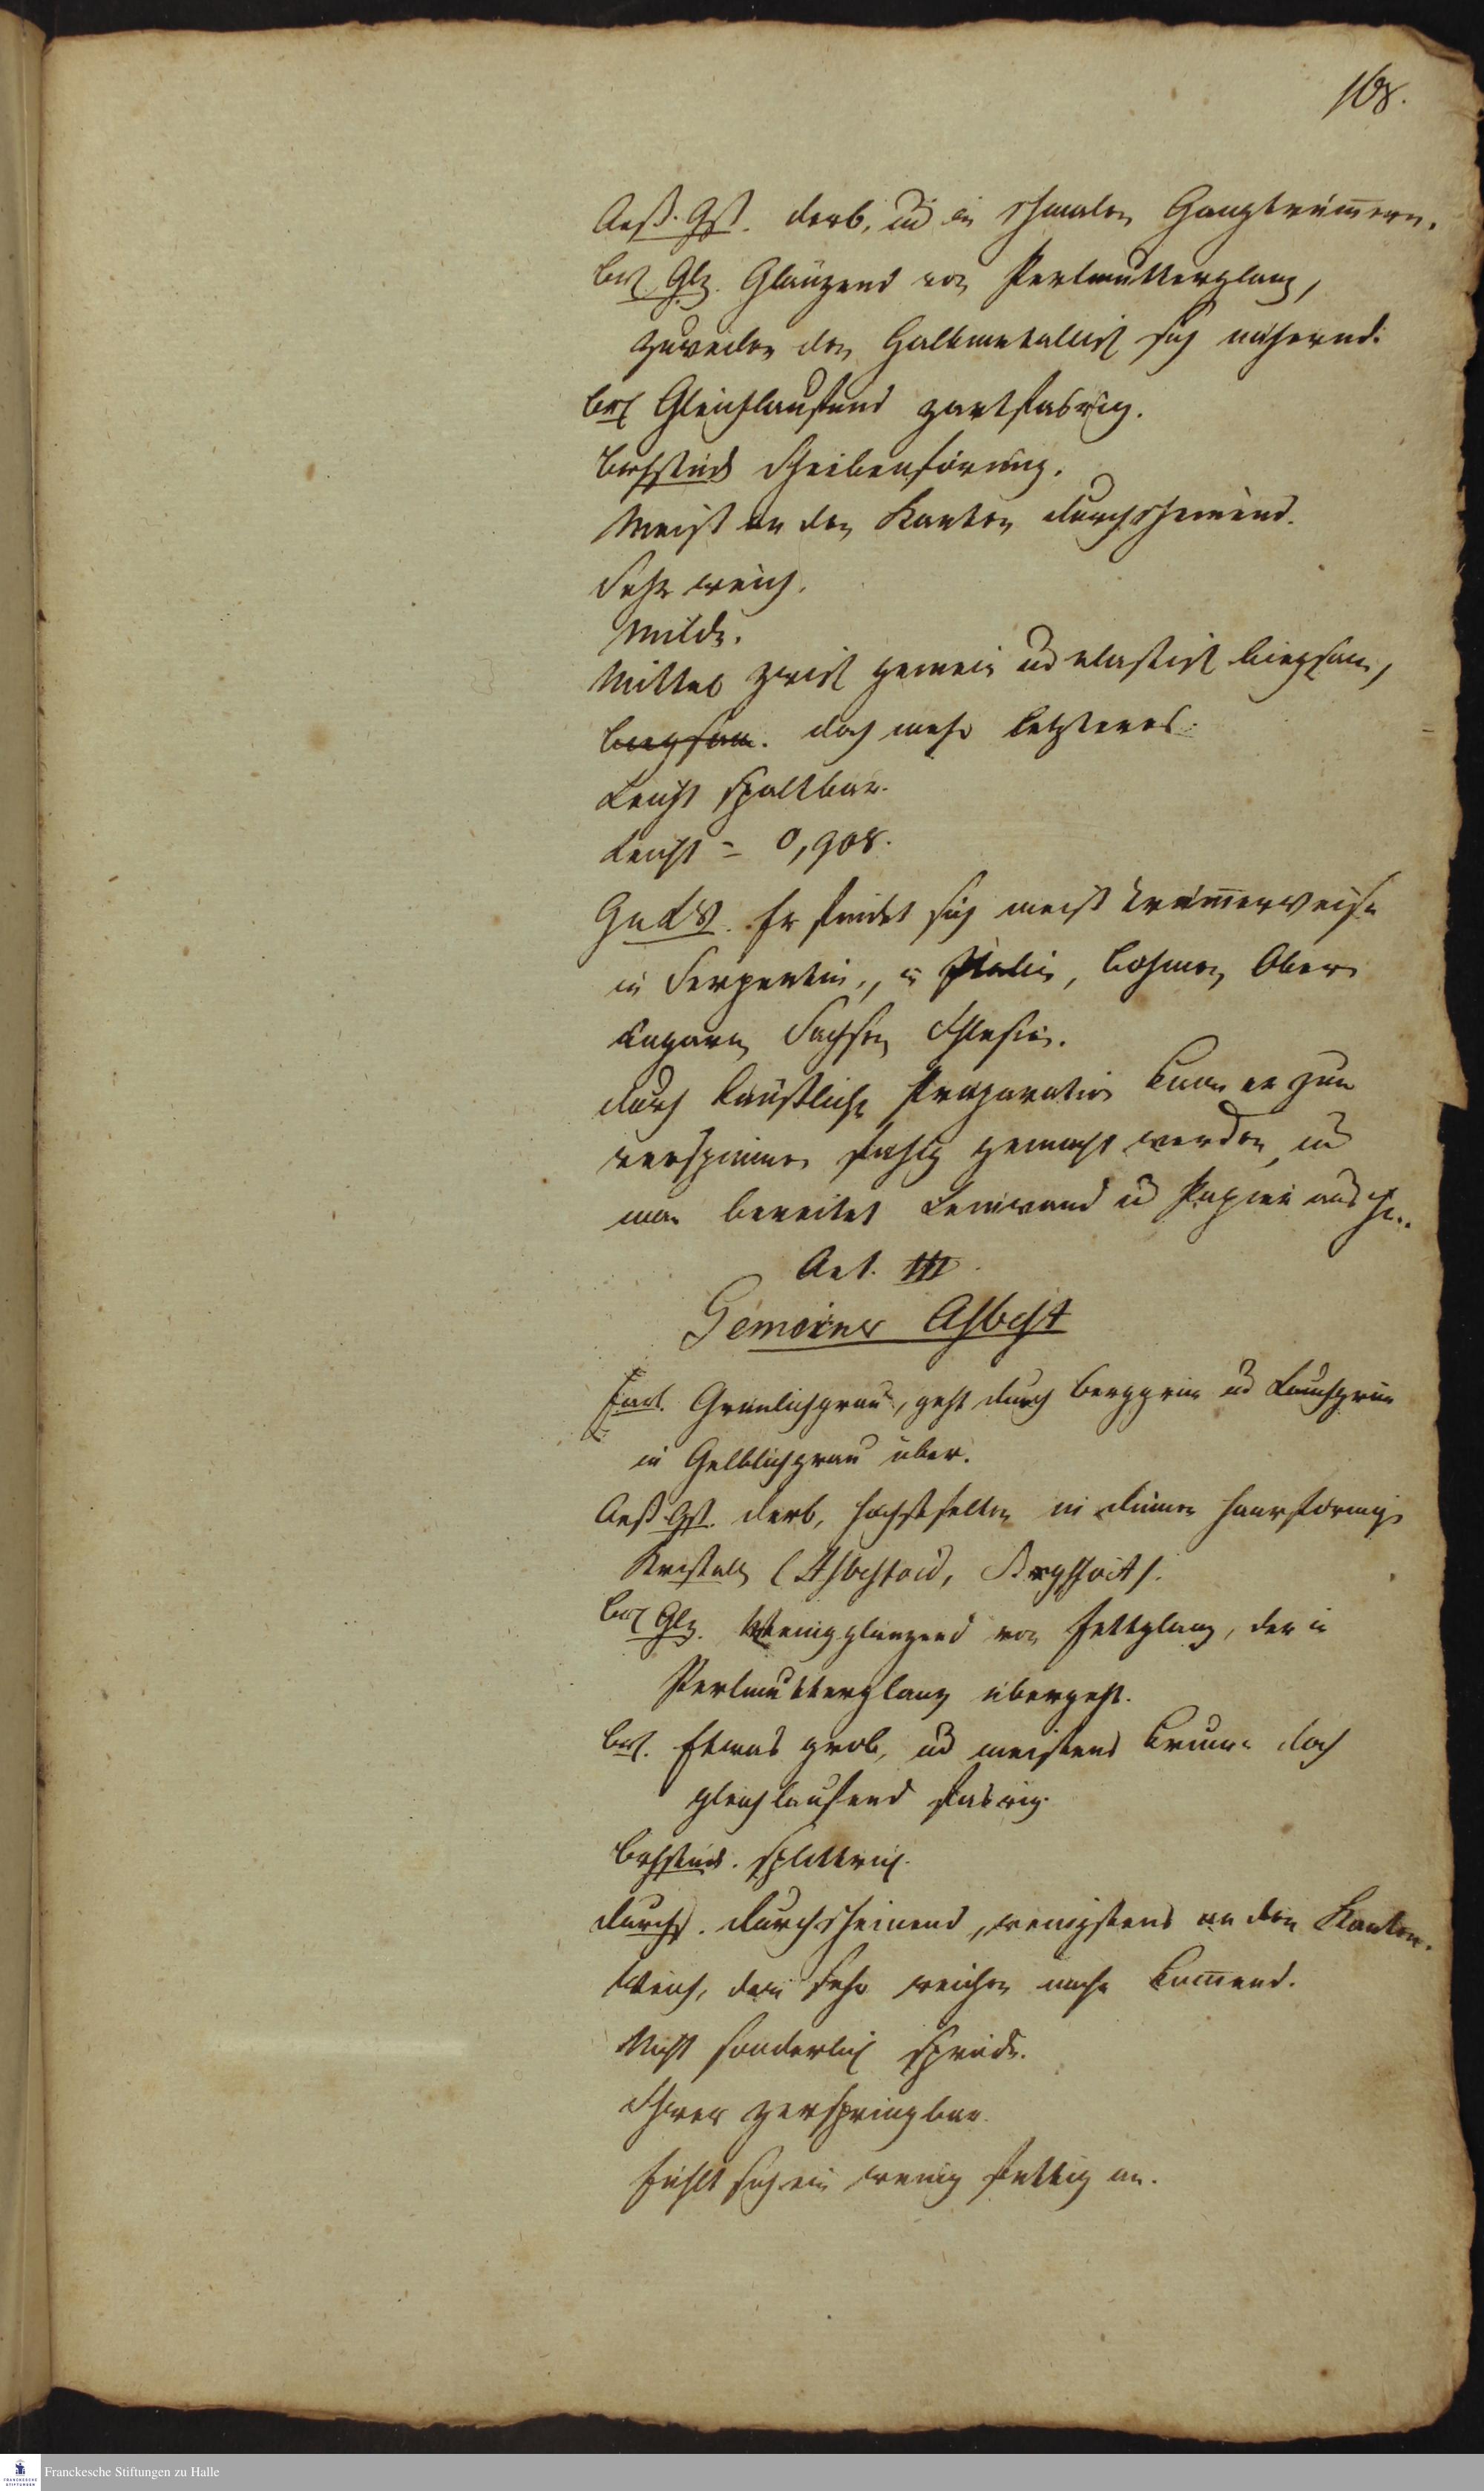 168.
Aeß. Gst. derb, und in schmalen Gangtrümern.
Br. Glz. Glänzend von Perlmutterglanz,
zuweilen den Halbmetallisch sich nähernd.
Br. Gleichlaufend zartfasrig.
Brchstück Scheibenförmig.
Meist an den Kanten durchscheinend.
Sehr weich.
Milde.
Mittel zwisch gemein und elastisch biegsam,
biegsam. doch mehr letzteres.
Leicht spaltbar.
Leicht = 0,908.
Er findet sich meist trümerweise
in Serpentin, in Italien, Bohmen Ober
Ungarn Sachsen Schlesien.
durch künstliche Präparation kann er zum
verspinnen fähig gemacht werden, und
man bereitet Leinwand und Papier aus
Art. III
Gemeiner Asbest
Farb. Grünlichgrau, geht durch berggrün und Lauchgrün
in Gelblichgrau über.
Aeß. Gst. derb, höchstselten in dünnen haarförmig
Kristall (Asbestoid, Byssolit).
Br. Glz. Wenigglänzend von Fettglanz, der in
Perlmutterglanz übergeht.
Br. Etwas grob, und meistens krumm doch
gleichlaufend fasrig.
Brchstück. splittrig.
durchs. durchscheinend, wenigstens an den Kanten.
Weich, dem sehr weichen nahe komend.
Nicht sonderlich spröde.
Schwer zerspringbar.
Fühlt sich ein wenig fettig an.
Franckesche Stiftungen zu Halle
FRANCKESCHE STIFTUNGEN